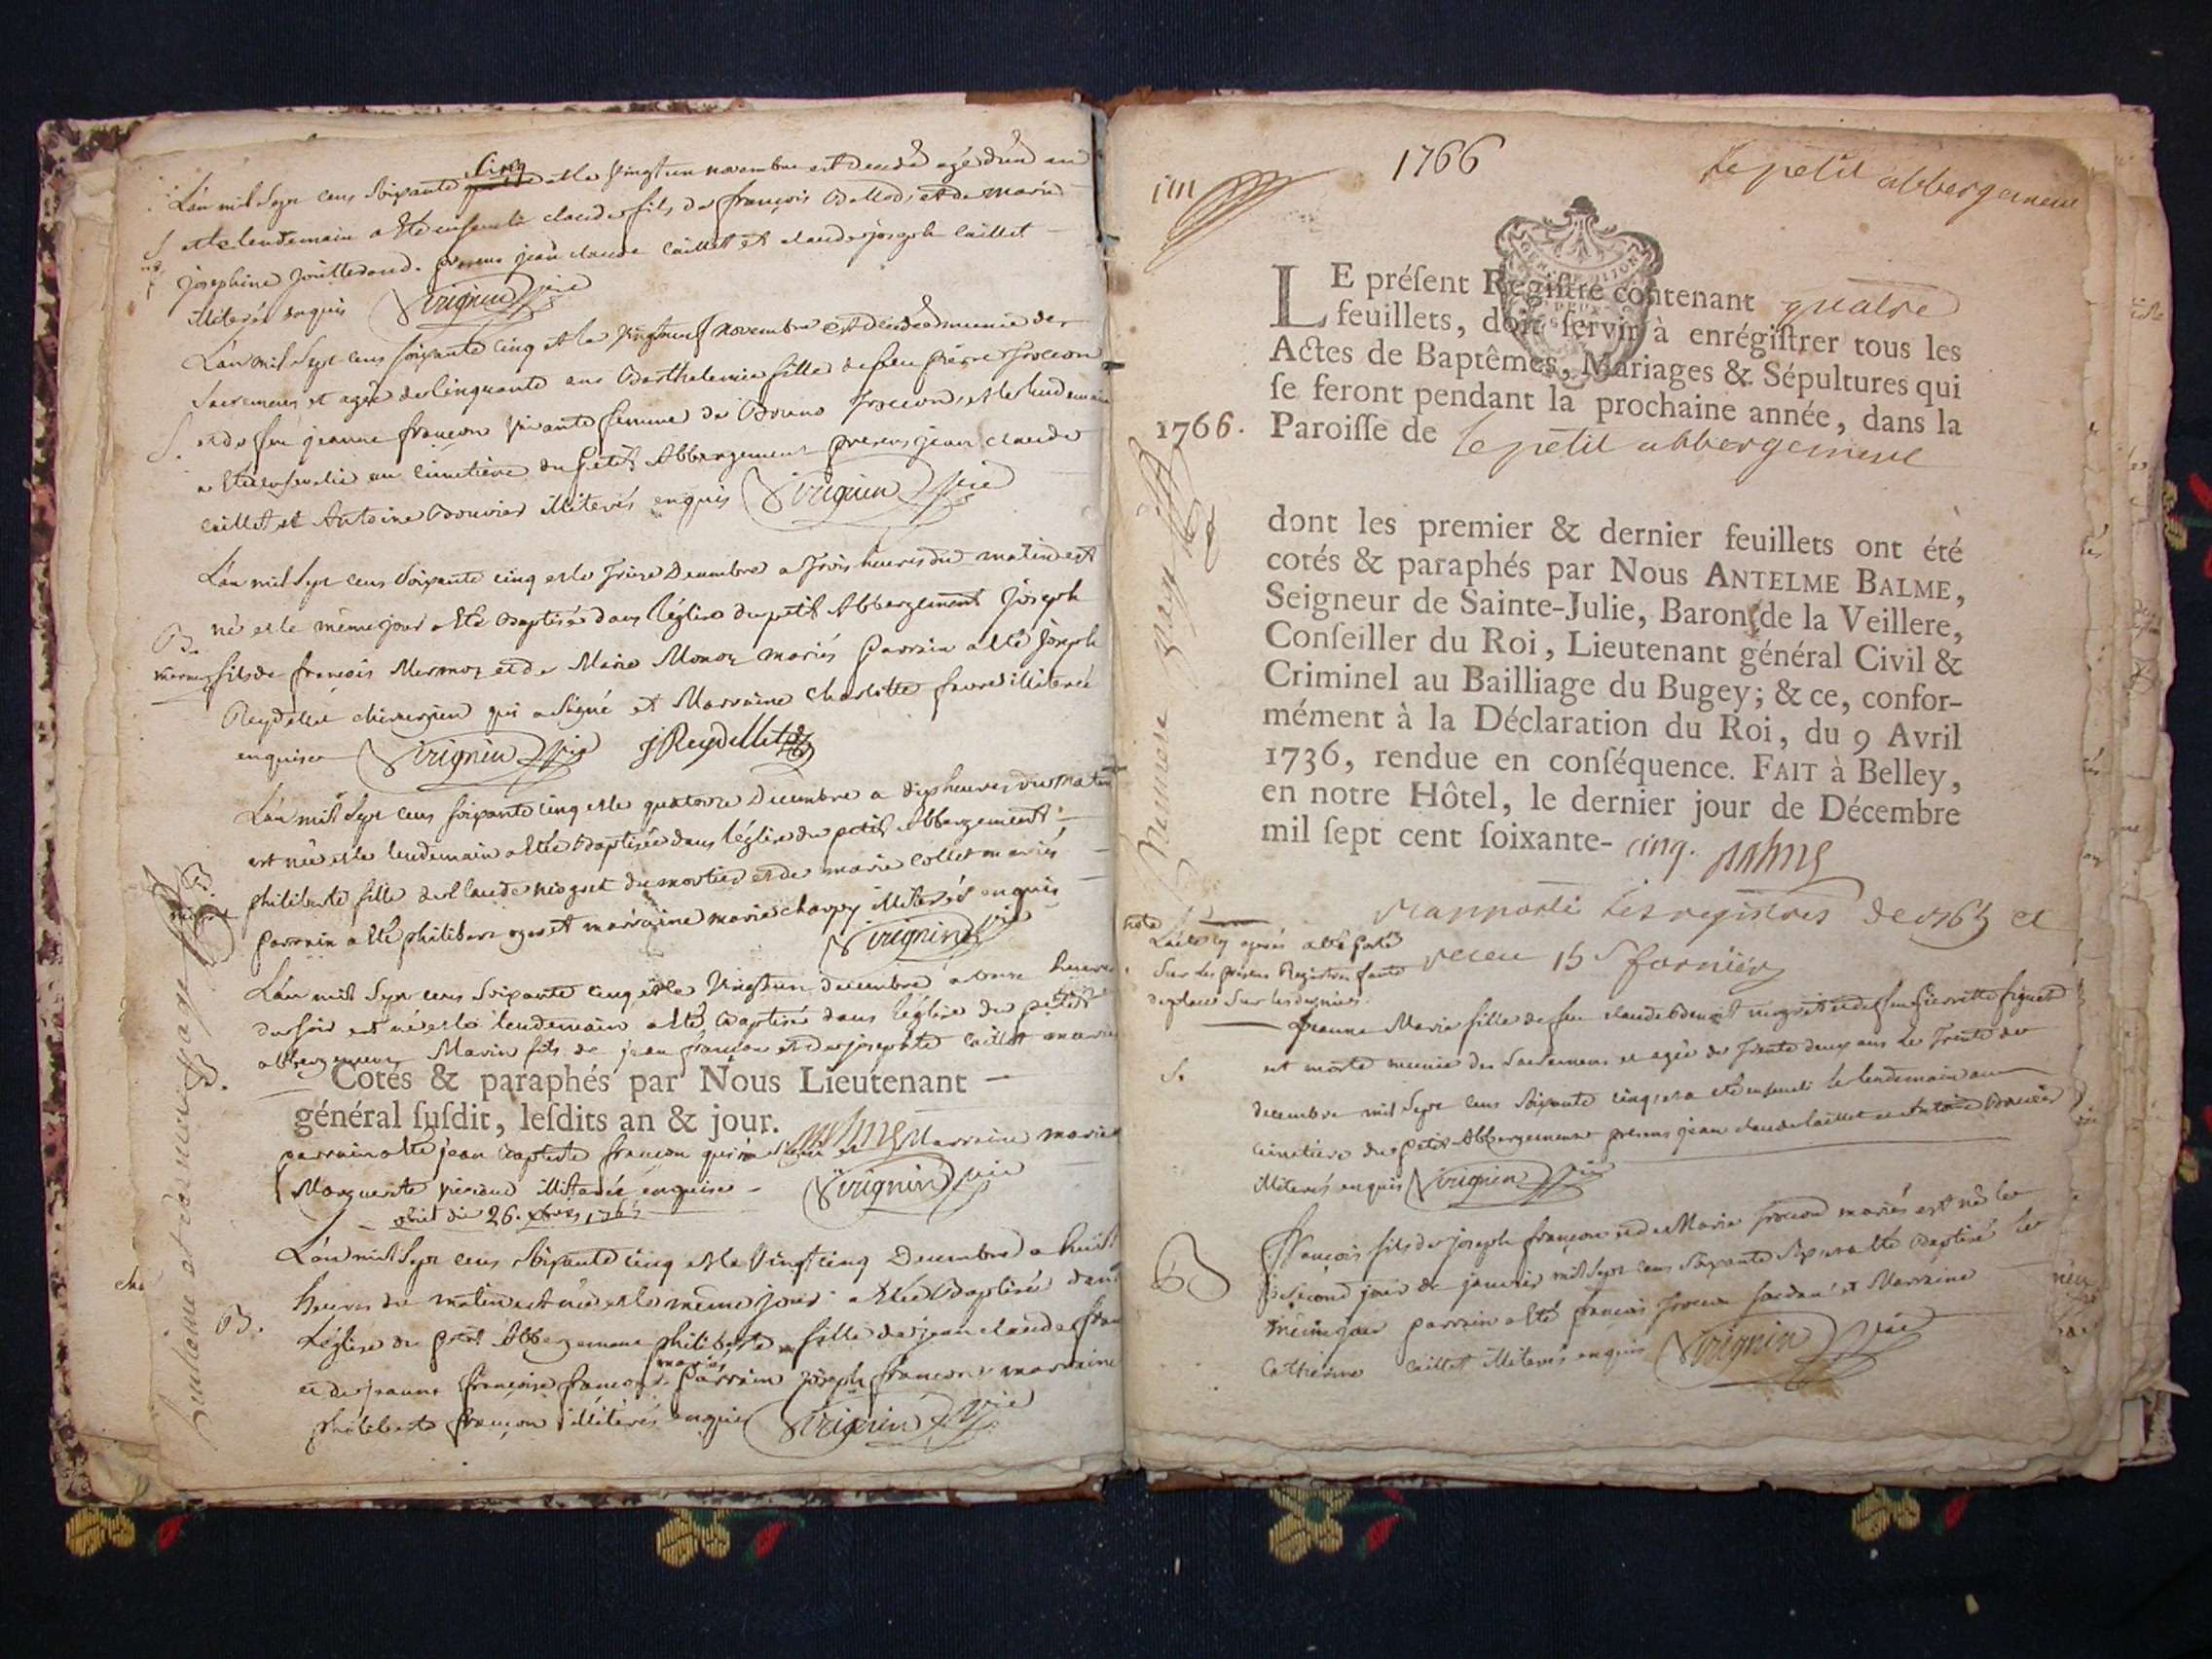 L'an mil sept cens soixante cinq et le vingt un novembre est decedé agé d'un an
et le lendemain a été enseveli claude fils de françois et de marie
josephine presens jean claude caillet et claude joseph caillet
illiterés enquis Virignin vic
L'an mil sept cens soixante cinq et le vingt neuf novembre est decedé munie des
sacremens et agée de cinquante ans Barthelemie fille de feu pierre
S. et de feu jeanne françon vivante femme de et le lendemain
a été ensevelie au cimetière du petit Abbergement presens jean claude
caillet et Antoine Bouvier illiterés enquis Virignin vic
L'an mil sept cens soixante cinq et le treize Decembre a trois heures du matin est
B. né et le même jour a été Baptisé dans l'église du petit Abbergement Joseph
mermoz fils de françois Mermoz et de Marie Monoz mariés Parrain a été Joseph
Reydellet chirurgien qui a signé et Marraine Charlotte favre illiterée
enquise Virignin vic J Reydellet
L'an mil sept cens soixante cinq et le quatorze Decembre a dix heures du matin
B. est née et le lendemain a été Baptisée dans l'église du petit Abbergement
philiberte fille de Claude niogret du mortier et de marie collet mariés
parrain a été philibert et marraine marie charpy illiterés enquis
Virignin vic
L'an mil sept cens soixante cinq et le vingt un decembre a onze heures
du soir est né et le lendemain a été Baptisé dans l'église du petit
abbergement Marin fils de jean françon et de josephte caillet mariés
B.
Cotés & paraphés par Nous Lieutenant
général ſuſdit, leſdits an & jour.
parrain a été jean Baptiste françon qui a signé et Marraine marie
Marguerite illiterée enquise Virignin vic
obiit die 26. xbris 1765
L'an mil sept cens soixante cinq et le vingt cinq Decembre a huit
B. heures du matin est née et le même jour a été Baptisée dans
L'église du petit Abbergement philiberte fille de jean claude
et de jeanne françoise françon mariés Parrain joseph françon marraine
philiberte françon illiterés enquis Virignin vic
1766
le petit abbergement
LE préſent Regiſtre contenant quatre
feuillets, doit ſervir à enrégiſtrer tous les
Actes de Baptêmes, Mariages & Sépultures qui
ſe feront pendant la prochaine année, dans la
1766. Paroiſſe de le petit abbergement
dont les premier & dernier feuillets ont été
cotés & paraphés par Nous ANTELME BALME,
Seigneur de Sainte-Julie, Baron de la Veillere,
Conſeiller du Roi, Lieutenant général Civil &
Criminel au Bailliage du Bugey; & ce, confor-
mément à la Déclaration du Roi, du 9 Avril
1736, rendue en conſéquence. FAIT à Belley,
en notre Hôtel, le dernier jour de Décembre
mil ſept cent ſoixante- cinq. Balme
rapporté les registres de 1765 et
receu 15 s fornier
nota
L'acte cy après a été porté
sur les présens Registres faute
de place sur les derniers.
Jeanne Marie fille de feu claude Benoit niogret et de feu Pierrette
S. est morte munie des Sacremens et agée de trente deux ans le trente de
decembre mil sept cens soixante cinq et a été enseveli le lendemain au
cimetiere du petit Abbergement presens jean claude caillet et Antoine Bouvier
illiterés enquis Virignin vic
B François fils de joseph françon et de Marie mariés est né le
second jour de janvier mil sept cens soixante six et a été Baptisé le
même jour parrain a été françois et Marraine
Catherine caillet illiterés enquis Virignin vic